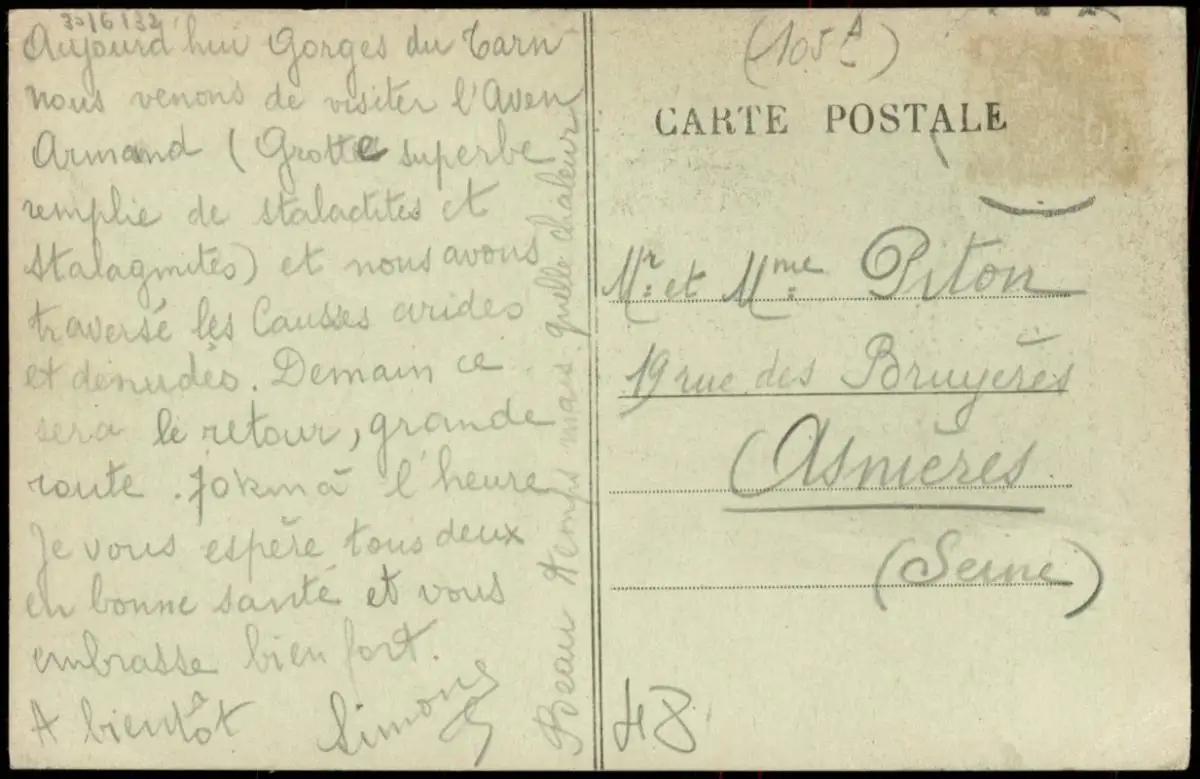 30/6/32
Aujourd'hui Gorges du Tarn
nous venons de visiter l'Aven
Armand (Grotte superbe
remplie de staladites et
stalagmites) et nous avons
traversé les Causses arides
et dénudés. Demain ce
sera le retour, grande
route. 70km à l'heure
Je vous espère tous deux
en bonne santé et vous
embrasse bien fort.
A bientôt Simone
Beau temps mais quelle chaleur
(105A)
CARTE POSTALE
Mr. et Mme. Piton
19 rue des Bruyères
Asnières
(Seine)
48